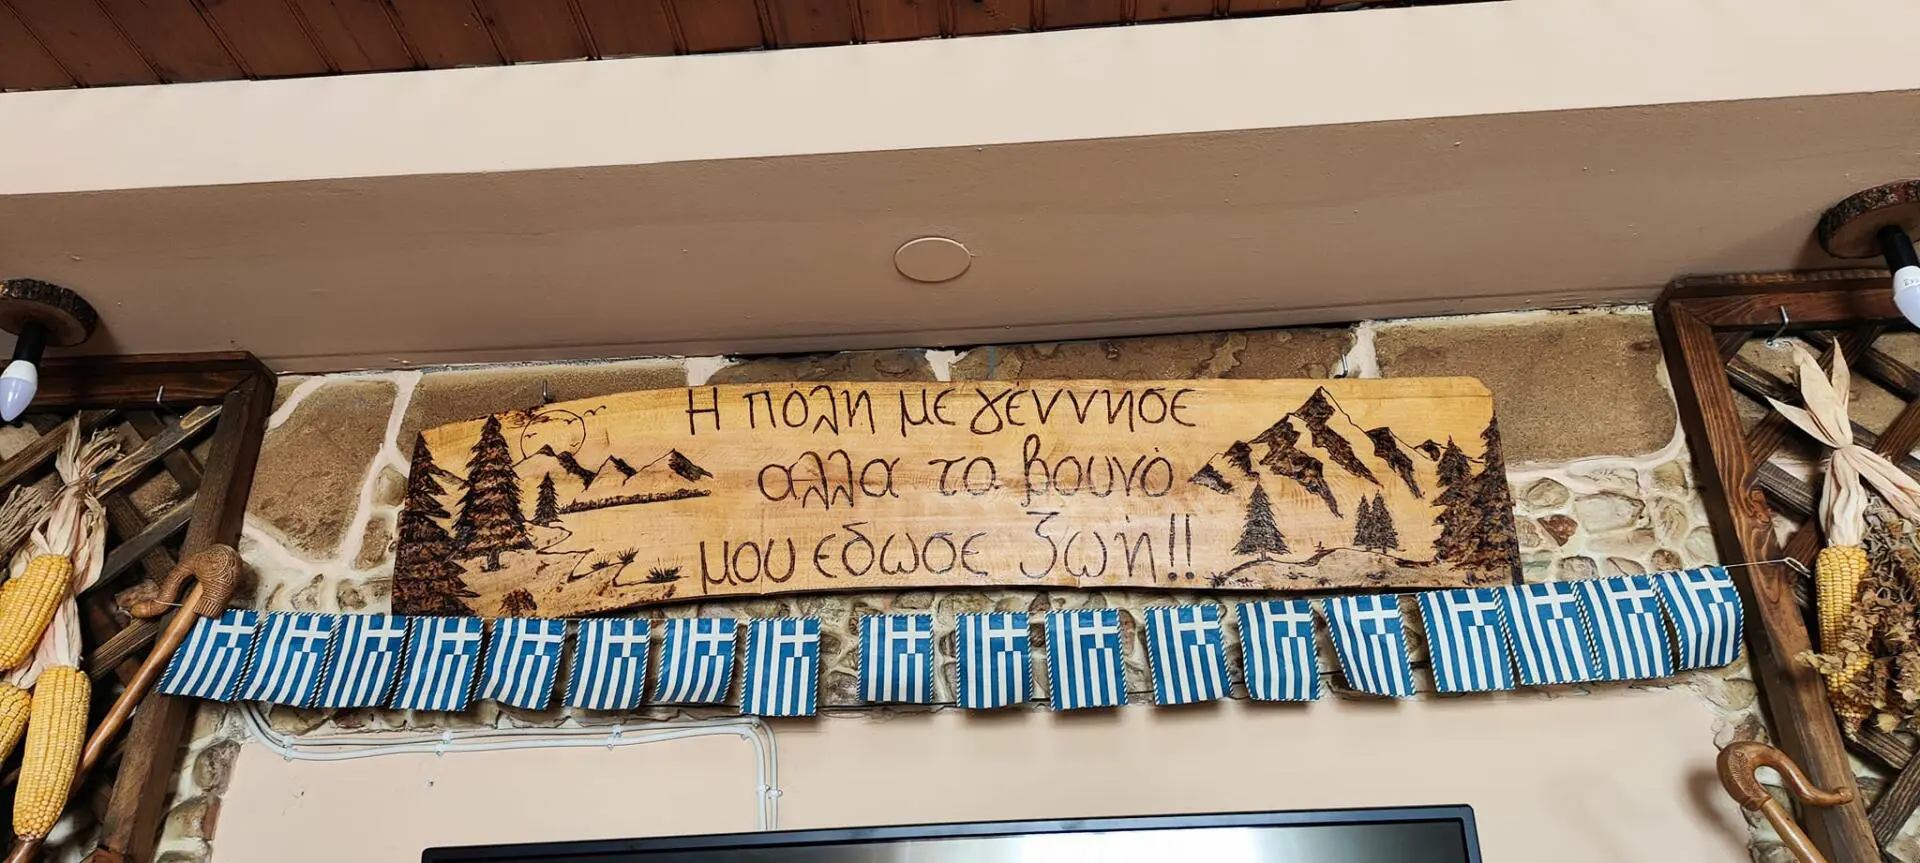 Η πόλη με γέννησε
αλλα το βουνό
μου εδωσε ζωή!!